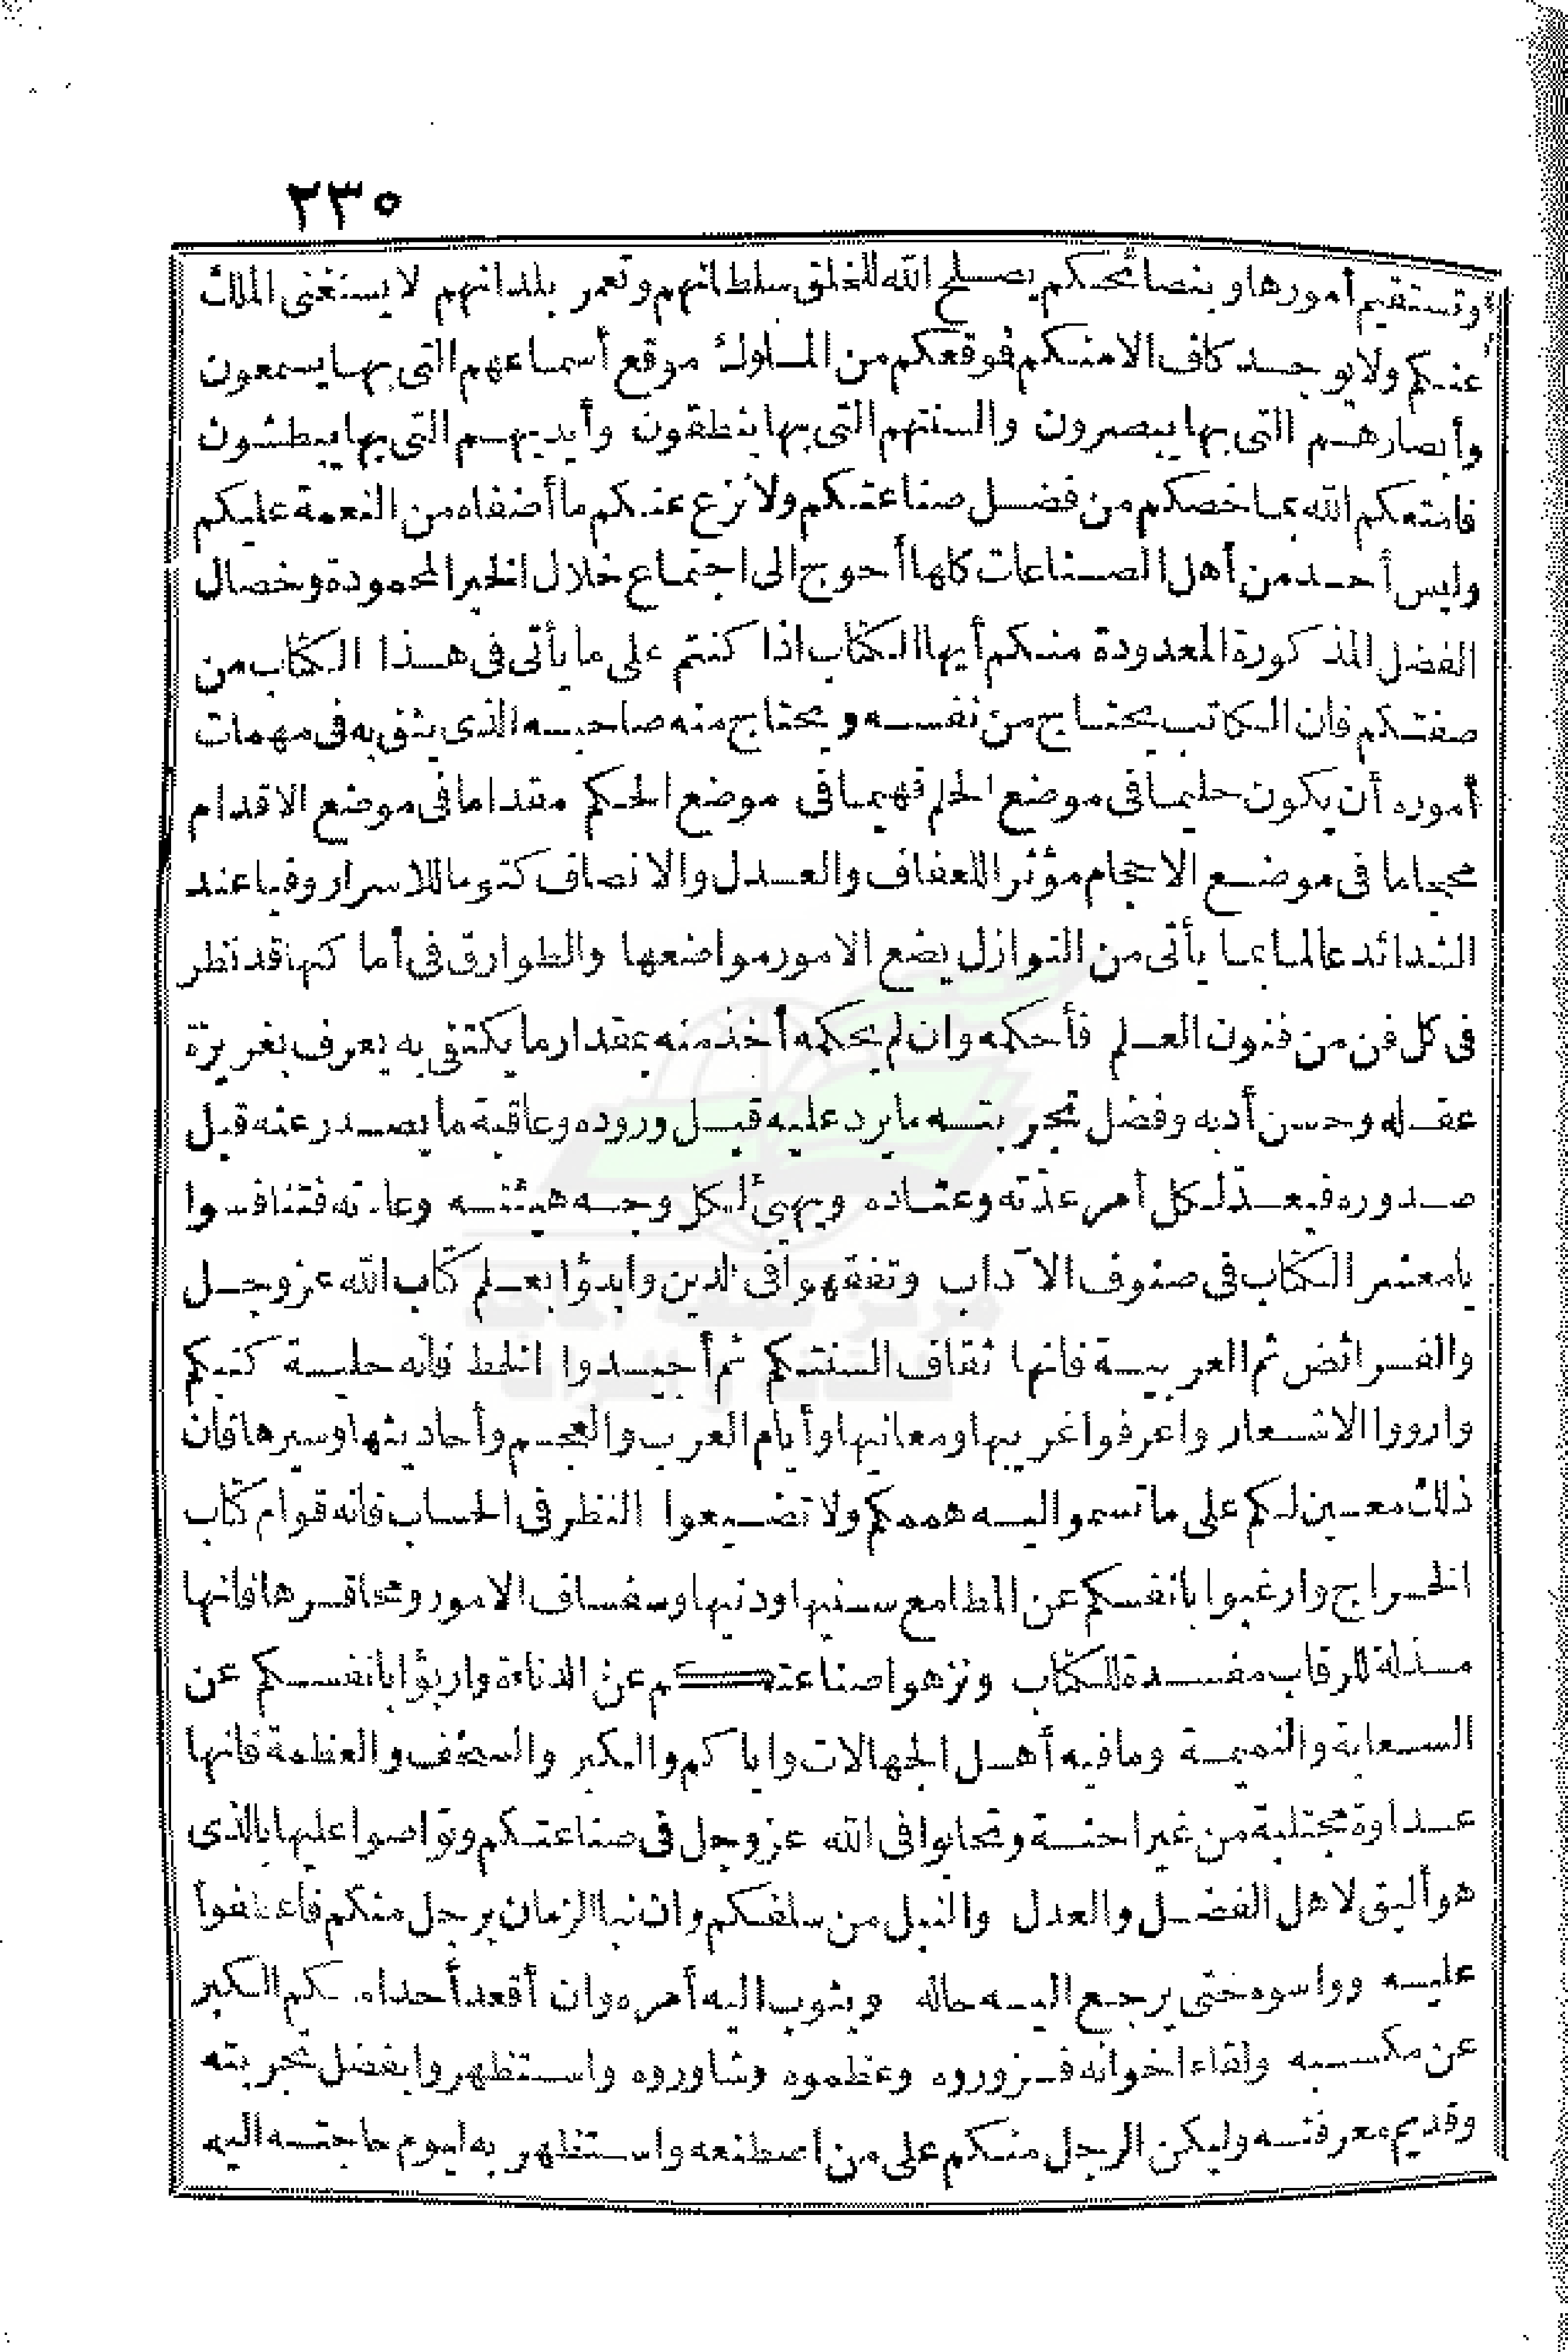 ٢٣٥
وتستقيم أمورها وبنصائحكم يصلح الله للخلق سلطانهم وتعمر بلدانهم لا يستغنى الملك
عنكم ولا يوجد كاف الا منكم فوقعكم من الملوك موقع أسماعهم التى بها يسمعون
وأبصارهم التى بها يبصرون وألسنتهم التى بها ينطقون وأيديهم التى بها يبطشون
فامتعكم الله بما خصكم من فضل صناعتكم ولا نزع عنكم ما أضفاه من النعمة عليكم
وليس أحد من أهل الصناعات كلها أحوج الى اجتماع خلال الخير المحمودة وخصال
الفضل المذكورة المعدودة منكم أيها الكتاب اذا كنتم على ما يأتى فى هذا الكتاب من
صفتكم فان الكاتب يحتاج من نفسه ويحتاج منه صاحبه الذى يثق به فى مهمات
أموره أن يكون حليما فى موضع الحلم فهيما فى موضع الحكم مقداما فى موضع الاقدام
محجاما فى موضع الاحجام مؤثرا للعفاف والعدل والانصاف كتوما للاسرار وفيا عند
الشدائد عالما بما يأتى من النوازل يضع الامور مواضعها والطوارق فى أماكنها قد نظر
فى كل فن من فنون العلم فأحكمه وان لم يحكمه أخذ منه بمقدار ما يكتفى به يعرف بغريزة
عقله وحسن أدبه وفضل تجربته ما يرد عليه قبل وروده وعاقبة ما يصدر عنه قبل
صدوره فيعد لكل أمر عدته وعتاده ويهيئ لكل وجه هيئته وعادته فتنافسوا
يا معشر الكتاب فى صنوف الآداب وتفقهوا فى الدين وابدؤا بعلم كتاب الله عز وجل
والفرائض ثم العربية فانها ثقاف ألسنتكم ثم أجيدوا الخط فانه حلية كتبكم
وارووا الاشعار واعرفوا غريبها ومعانيها وأيام العرب والعجم وأحاديثها وسيرها فان
ذلك معين لكم على ما تسمو اليه هممكم ولا تضيعوا النظر فى الحساب فانه قوام كتاب
الخراج وارغبوا بانفسكم عن المطامع سنيها ودنيها وسفساف الامور ومحاقرها فانها
مذلة للرقاب مفسدة للكتاب ونزهوا صناعتكم عن الدناءة واربؤا بانفسكم عن
السعاية والنميمة وما فيه أهل الجهالات واياكم والكبر والسخف والعظمة فانها
عداوة مجتلبة من غير احنة وتحابوا فى الله عز وجل فى صناعتكم وتواصوا عليها بالذى
هو أليق لاهل الفضل والعدل والنبل من سلفكم وان نبا الزمان برجل منكم فاعطفوا
عليه وواسوه حتى يرجع اليه حاله ويثوب اليه أمره وان أقعد أحدا منكم الكبر
عن مكسبه ولقاء اخوانه فزوروه وعظموه وشاوروه واستظهروا بفضل تجربته
وقديم معرفته وليكن الرجل منكم على من اصطنعه واستظهر به ليوم حاجته اليه